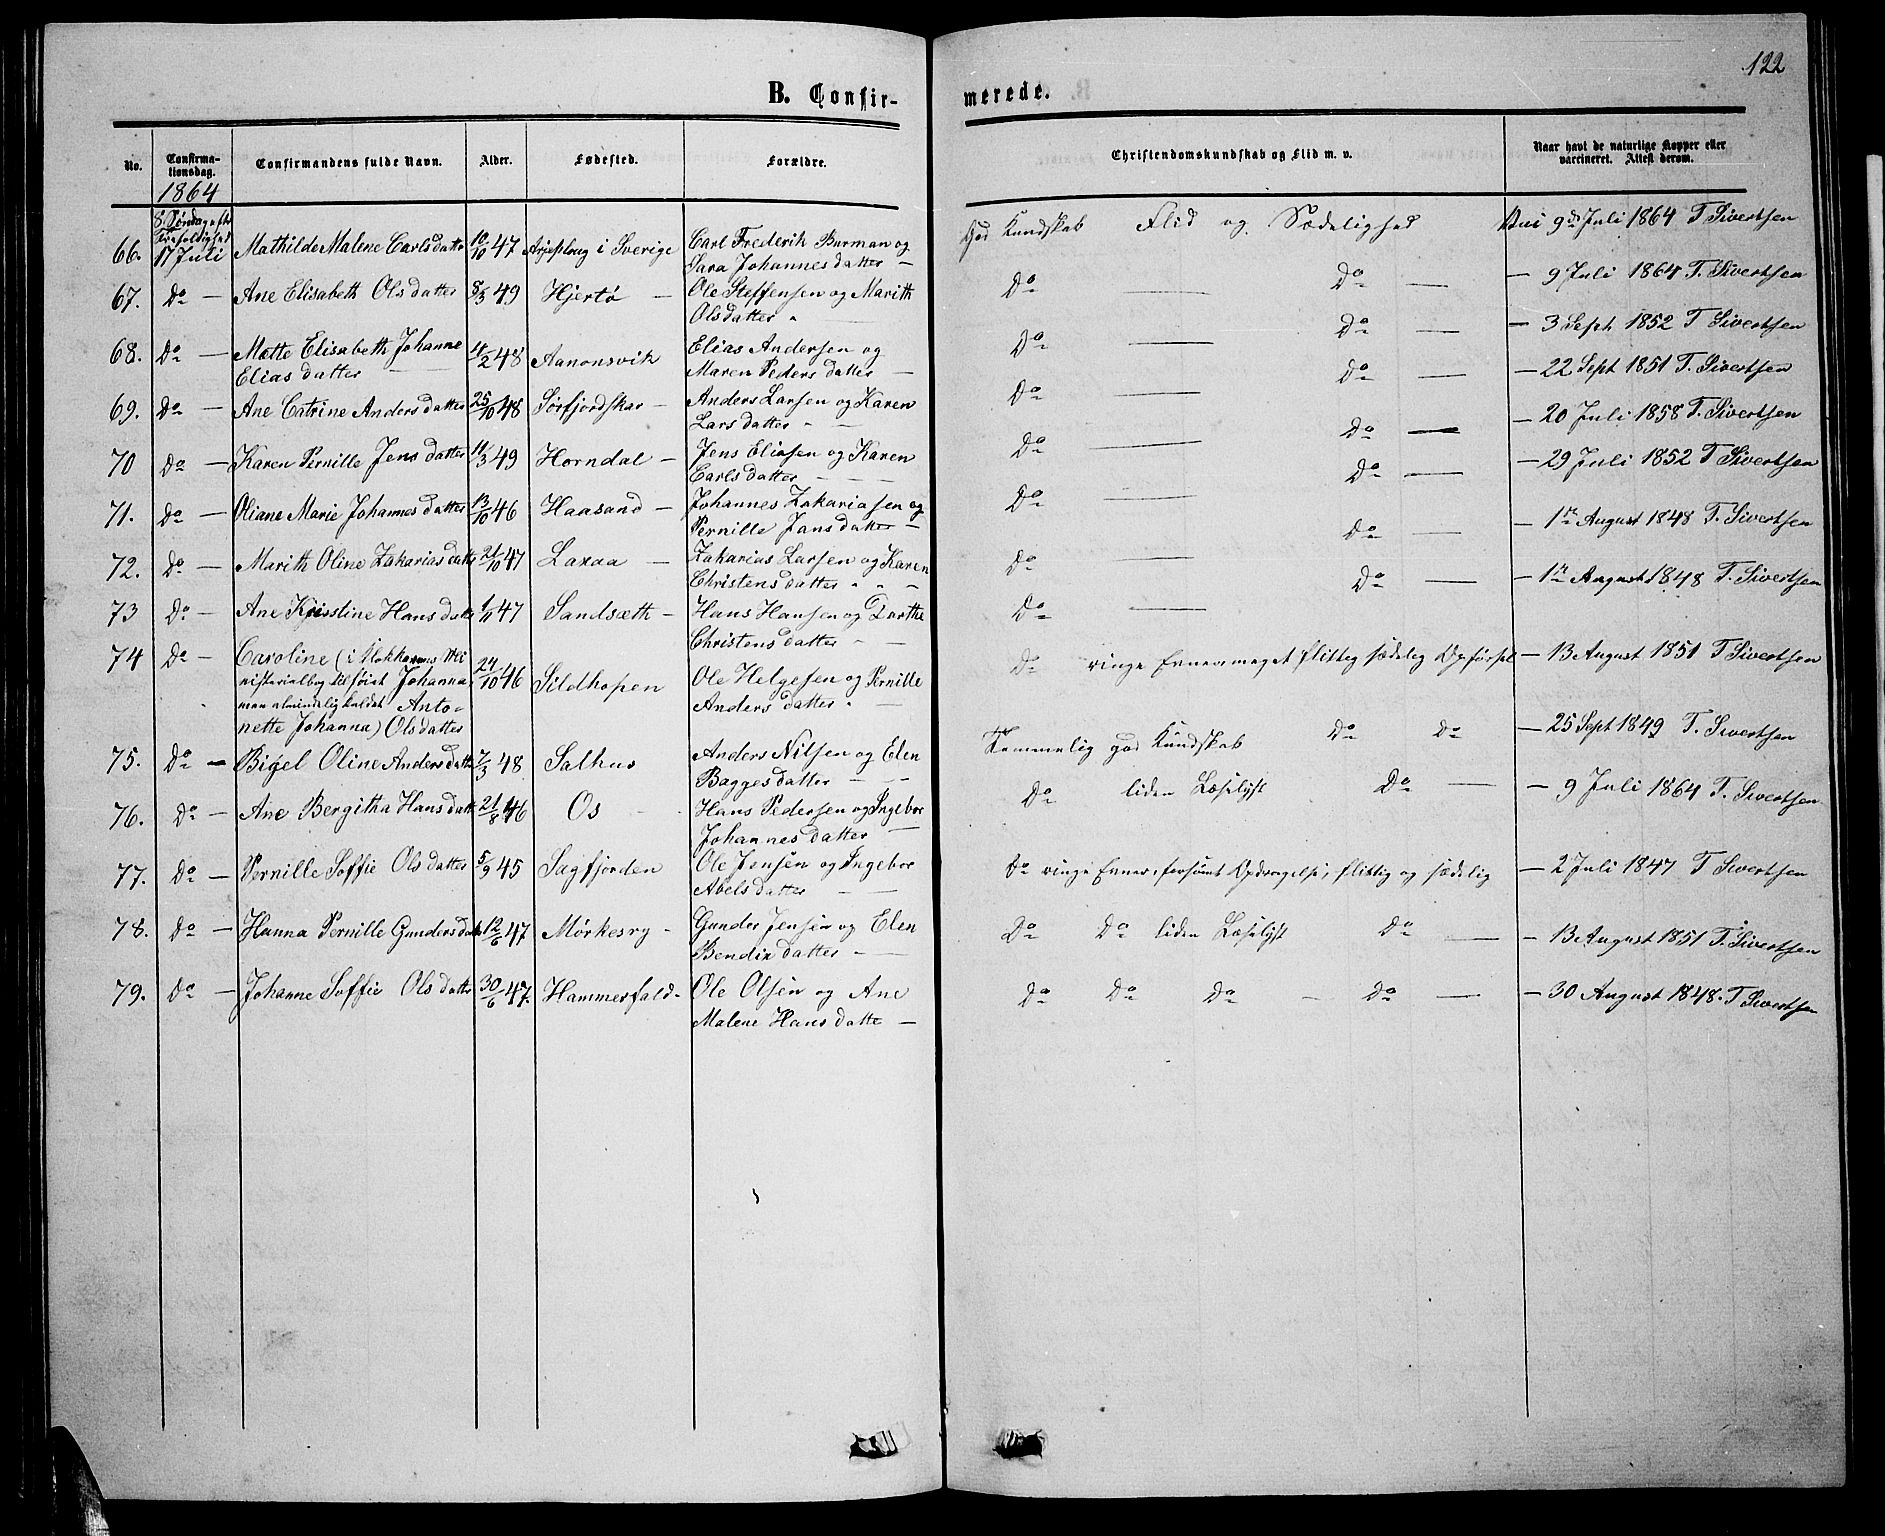 122
B. Confirmerede.
No. Confirmationsdag. Confirmandens fulde Navn. Alder. Fødested. Forældre. Christendomskundskab og Flid m. v. Naar havt de naturlige Kopper eller vaccineret. Attest derom.
1864
8 Søndag efter
Trefoldighed
66. 17 Juli Mathilde Malene Carlsdatter 10/10 47 Arjeploug i Sverige Carl Frederik Burman og God Kundskab Flid og Sædelighed 9de Juli 1864 T Sivertsen
Sara Johannesdatter —
67. Do — Ane Elisabeth Olsdatter 8/3 49 Hjertø — Ole Steffensen og Marith Do — Do — — 9 Juli 1864 T. Sivertsen
Olsdatter "
68. Do — Mette Elisabeth Johanne 11/2 48 Aanonsvik Elias Andersen og Do — Do — — 3 Sept 1852 T Sivertsen
Eliasdatter — Maren Pedersdatter —
69. Do — Ane Catrine Andersdatter 25/10 48 Sørfjordskar — Anders Larsen og Karen Do — Do — — 22 Sept 1851 T. Sivertsen
Larsdatter " —
70 Do — Karen Pernille Jensdatter 11/3 49 Horndal — Jens Eliasen og Karen Do — Do — — 20 Juli 1858 T. Sivertsen
Carlsdatter — — —
71. Do — Oliane Marie Johannesdatter 13/10 46 Haasand — Johannes Zakariasen og Do — Do — — 29 Juli 1852 T Sivertsen
Pernille Jansdatter —
72. Do — Marith Oline Zakariasdatter 21/10 47 Laxaa — Zakarias Larsen og Karen Do — Do — — 1ste August 1848 T. Sivertsen
Christensdatter " " "
73 Do — Ane Kristine Hansdatter 1/11 47 Sandsæth — Hans Hansen og Dorthe Do — Do — — 1ste August 1848 T. Sivertsen
Christensdatter " —
74 Do — Caroline (i Klokkerens Mi- 24/10 46 Sildhopen Ole Helgesen og Pernille Do ringe Evner meget flittig sædelig Opførsel — 13 August 1851 T Sivertsen
nisterialbog tilføiet Johanna, Andersdatter " —
men almindelig kaldet Anto-
nette Johanna) Olsdatter
75. Do — Bigel Oline Andersdatter 7/3 48 Salhus Anders Nilsen og Elen Temmelig god Kundskab Do Do — 25 Sept 1849 T. Sivertsen
Baggesdatter — —
76. Do — Ane Bergitha Hansdatter 21/8 46 Os — Hans Pedersen og Ingebor Do liden Læselyst Do — — 9 Juli 1864 T. Sivertsen
Johannesdatter —
77. Do — Pernille Soffie Olsdatter 5/9 45 Sagfjorden Ole Jensen og Ingebor Do ringe Evner, forsømt Opdragelse, flittig og sædelig — 2 Juli 1847 T Sivertsen
Abelsdatter — —
78. Do — Hanna Pernille Gundersdatter 12/6 47 Mørkesvy — Gunder Jensen og Elen Do Do liden Læselyst Do — — 13 August 1851 T. Sivertsen
Bendixdatter — —
79. Do — Johanne Soffie Olsdatter 30/6 47. Hammerfald — Ole Olsen og Ane Do Do Do — Do — — 30 August 1848. T Sivertsen
Malene Hansdatte —